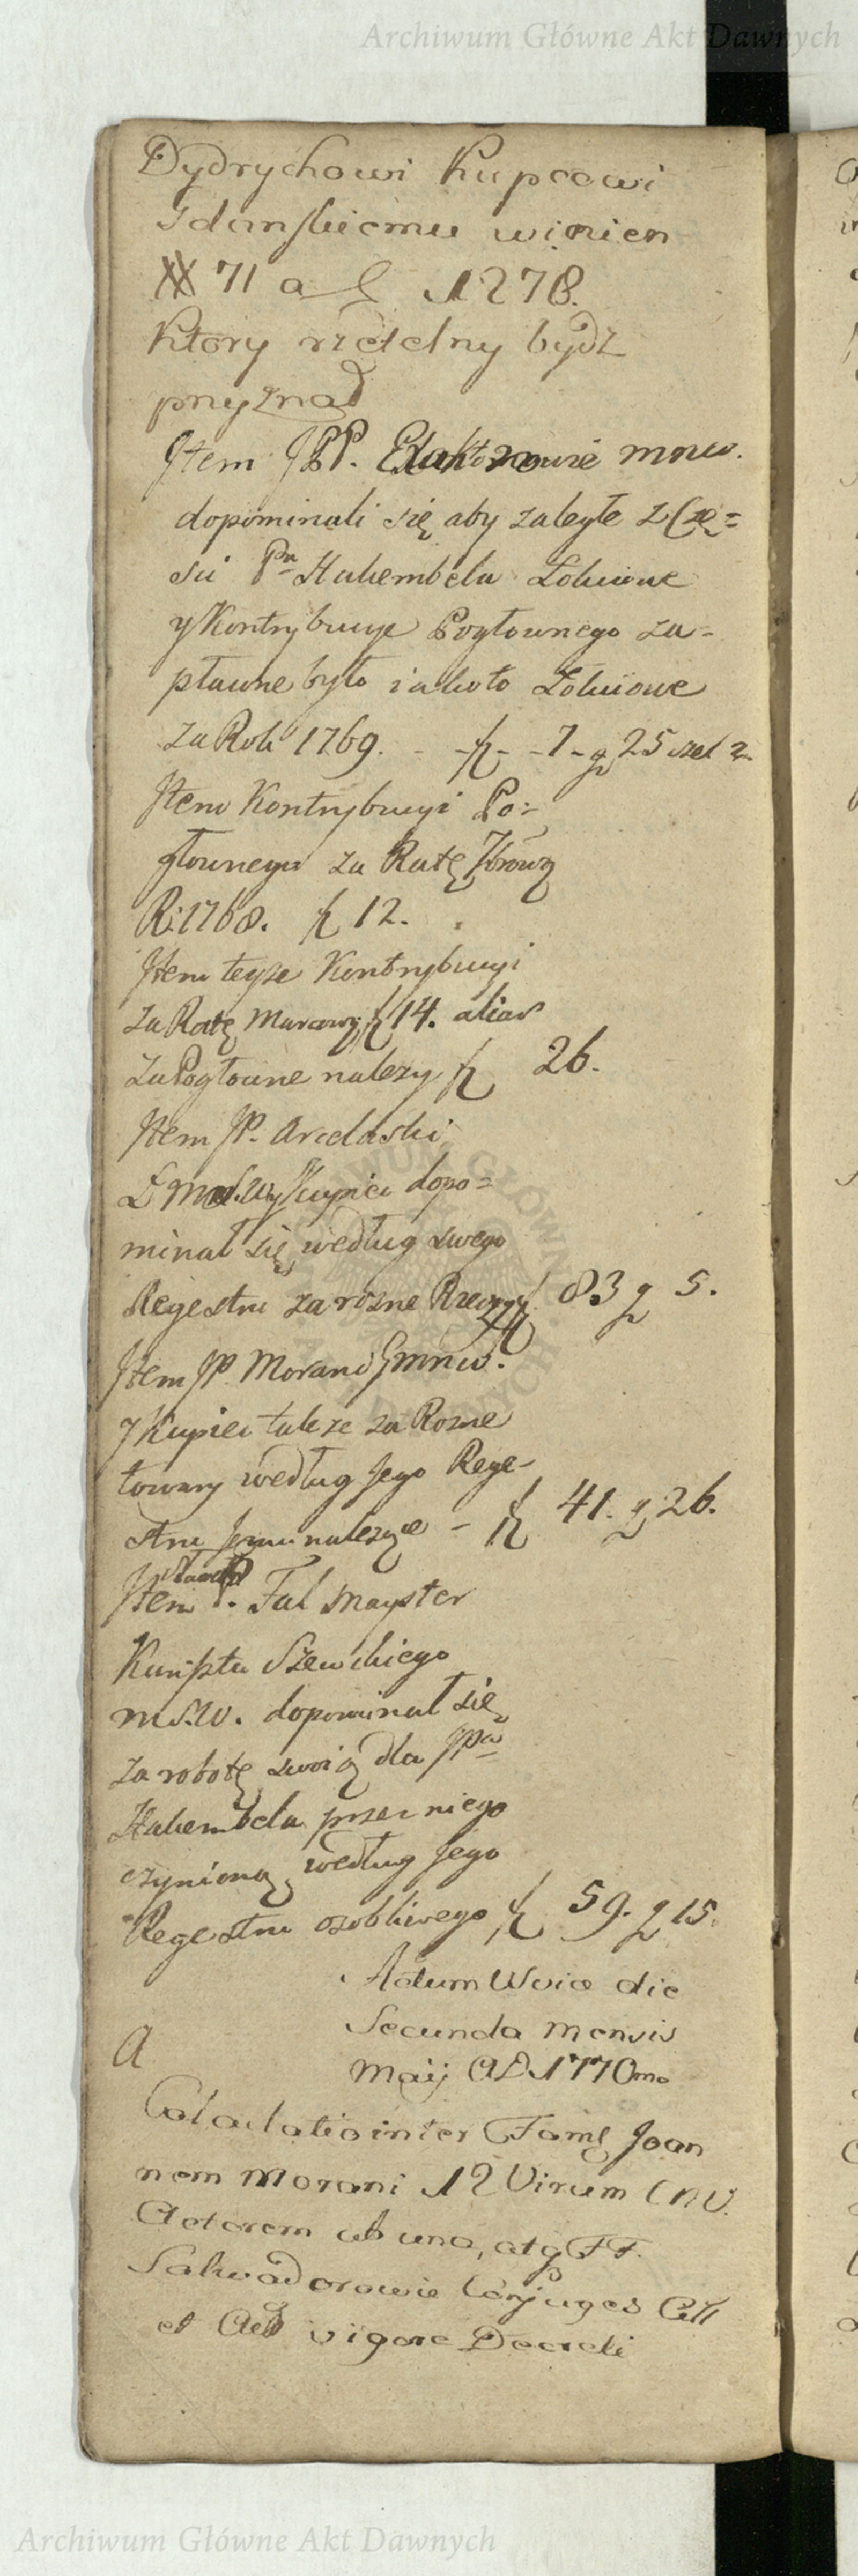 Archiwum Główne Akt Dawnych
Dydrychowi Kupcowi
Gdanskiemu winien
# 71 a f 1278.
Ktory rzetelny bydz
przyznał
Item JPP. Exaktorowie mnw.
dopominali się aby zaległe z Czę=
sci Pa Hakembela Łokciowe
y Kontrybucye Pogłownego za-
płacone było iakoto Łokciowe
za Rok 1769. - f - 7 - g 25 szel 2.
Item Kontrybucyi Po=
głownego za Ratę 7brową
R: 1768. f 12.
Item teyze Kontrybucyi
za Ratę Marcową f 14. alias
za Pogłowne nalezy f 26.
Item JP. Arcelaski
Ł mnw. y Kupiec dopo=
minał się według swego
Regestru za rozne Rzeczy f 83 g 5.
Item JP. Morani Gmnw.
y Kupiec takze za Rozne
towary według Jego Rege-
stru Jemu nalezące - f 41. g 26.
Item P. Fal Mayster
Kunsztu Szewckiego
m.s.w. dopominał się
za robotę swoią dla JPa
Hakembela przez niego
czynioną, według Jego
Regestru osobliwego f 59. g 15.
Actum Woice die
Secunda mensis
Maij AD 1770mo
A
Calculatio inter Fam Joan
nem Morani 12 Virum CNV.
Actorem ab una, atq FF.
Salwadorowie Conjuges Citt
et Aeb vigore Decreti
Archiwum Główne Akt Dawnych